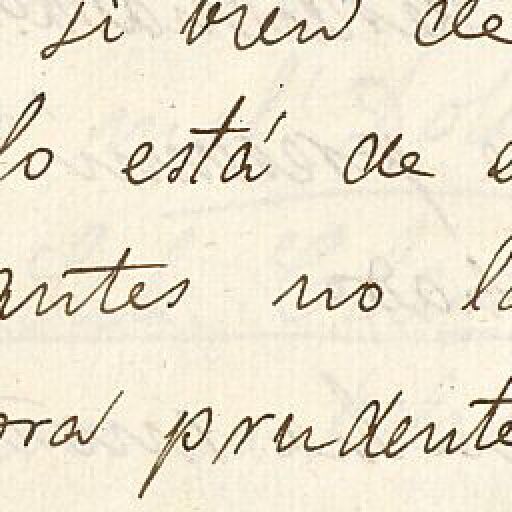 si bien de
lo está de
antes no lo
ora prudente